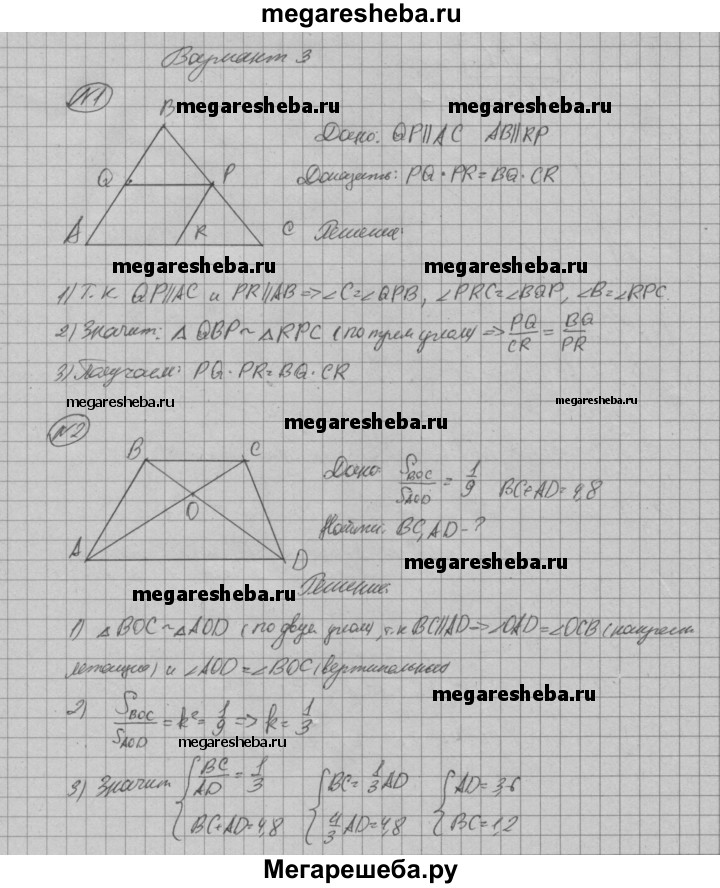 megaresheba.ru
Вариант 3
№1
megaresheba.ru megaresheba.ru
B
Дано: QP||AC AB||RP
Q P
Доказать: PQ · PR = BQ · CR
A R C
Решение:
megaresheba.ru megaresheba.ru
1) Т.к. QP||AC и PR||AB => ∠C = ∠QPB, ∠PRC = ∠BQP, ∠B = ∠RPC.
2) Значит: △QBP ~ △RPC (по трем углам) => PQ/CR = BQ/PR
3) Получаем: PQ · PR = BQ · CR
megaresheba.ru megaresheba.ru megaresheba.ru
№2
B C
Дано: S_BOC/S_AOD = 1/9 BC+AD = 4,8
O
Найти: BC, AD - ?
A D
megaresheba.ru
Решение:
megaresheba.ru
1) △BOC ~ △AOD (по двум углам), т.к BC||AD => ∠OAD = ∠OCB (накрест
лежащие) и ∠AOD = ∠BOC (вертикальные
megaresheba.ru
2) S_BOC/S_AOD = k² = 1/9 => k = 1/3
megaresheba.ru
3) Значит { BC/AD = 1/3 { BC = 1/3 AD { AD = 3,6
BC+AD = 4,8 4/3 AD = 4,8 BC = 1,2
Мегарешеба.ру